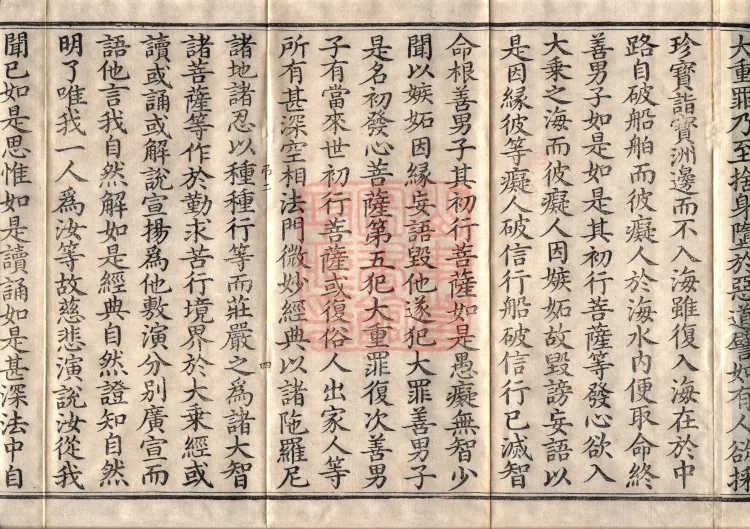 大重罪乃至捨身墮於惡道譬如有人欲採
珍寶詣寶洲邊而不入海雖復入海在於中
路自破船舶而彼癡人於海水内便取命終
善男子如是如是其初行菩薩等發心欲入
大乘之海而彼癡人因嫉妬故毀謗妄語以
是因緣彼等癡人破信行船破信行已滅智
命根善男子其初行菩薩如是愚癡無智少
聞以嫉妬因緣妄語毀他遂犯大罪善男子
是名初發心菩薩第五犯大重罪復次善男
子有當來世初行菩薩或復俗人出家人等
所有甚深空相法門微妙經典以諸陁羅尼
弔二 四
諸地諸忍以種種行等而莊嚴之爲諸大智
諸菩薩等作於勤求苦行境界於大乘經或
讀或誦或解說宣揚爲他敷演分別廣宣而
語他言我自然解如是經典自然證知自然
明了唯我一人爲汝等故慈悲演說汝從我
聞已如是思惟如是讀誦如是甚深法中自